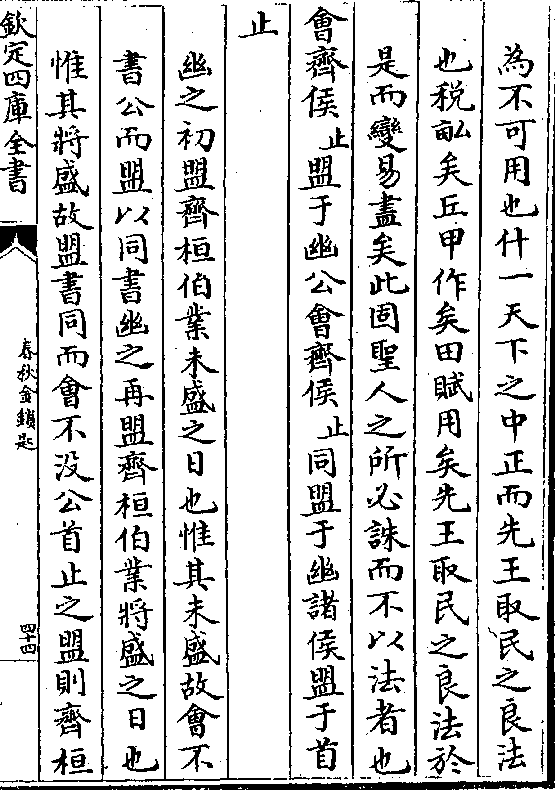 為不可用也什一天下之中正而先王取民之良法
也稅畝矣丘甲作矣田賦用矣先王取民之良法於
是而變易盡矣此固聖人之所必誅而不以法者也
會齊侯止盟于幽公會齊侯止同盟于幽諸侯盟于首
止
幽之初盟齊桓伯業未盛之日也惟其未盛故會不
書公而盟以同書幽之再盟齊桓伯業將盛之日也
惟其將盛故盟書同而會不没公首止之盟則齊桓
欽定四庫全書
春秋金鎖匙
四十四